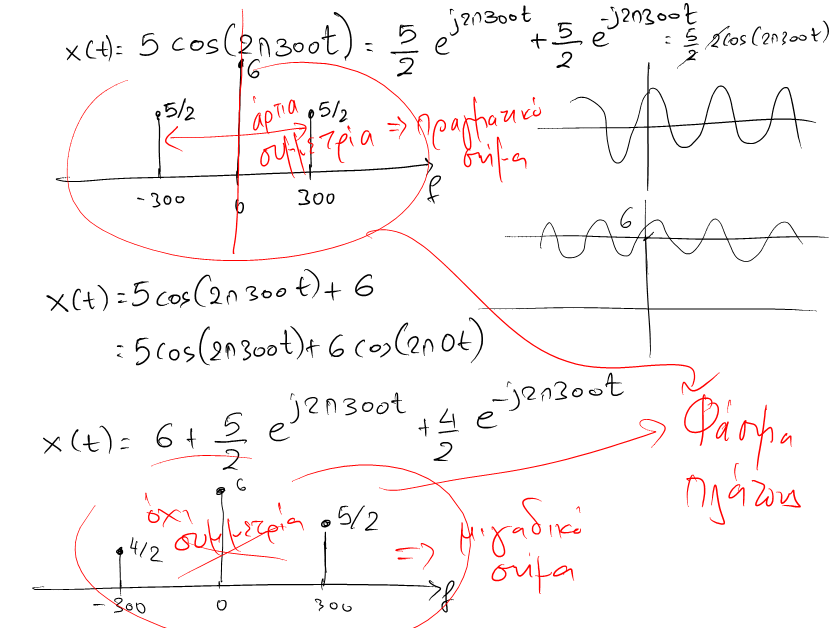 x(t) = 5 cos(2π300t) = 5/2 e^{j2π300t} + 5/2 e^{-j2π300t} = 5/2 2cos(2π300t)
6
5/2 5/2
άρτια
συμμετρία => πραγματικό
σήμα
-300 0 300 f
6
x(t) = 5cos(2π300t) + 6
= 5cos(2π300t) + 6 cos(2π0t)
x(t) = 6 + 5/2 e^{j2π300t} + 4/2 e^{-j2π300t}
Φάσμα
πλάτους
6
όχι
συμμετρία
4/2 5/2
=> μιγαδικό
σήμα
-300 0 300 f